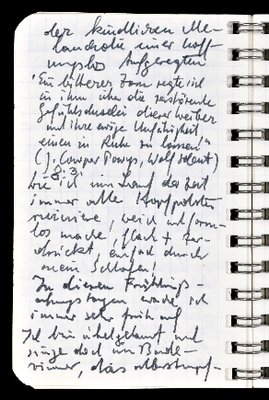 der kindlichen Me-
lancholie einer hoff-
nungslos Aufgeregten
"Ein bitterer Zorn regte sich
in ihm über die zerstörende
Gefühlsduselei dieser Weiber
und ihre ewige Unfähigkeit
einen in Ruhe zu lassen!"
(J. Cowper Powys, Wolf Solent)
8.3.
Wie ich im Lauf der Zeit
immer alle Kopfpolster
ruiniere, weich und form-
los mache, flach + zer-
drückt, einfach durch
mein Schlafen!
In diesen Frühlings-
tagen werde ich
immer sehr früh auf
Ich bin übelgelaunt und
singe doch im Bade-
zimmer, das